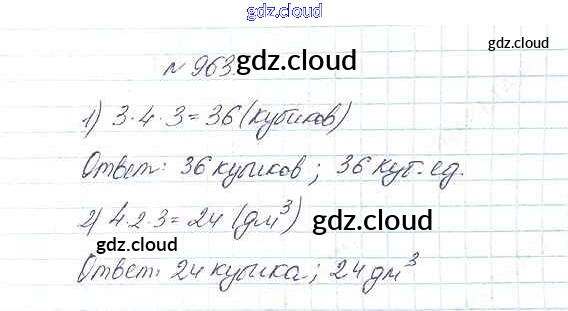 gdz.cloud
№ 963. gdz.cloud gdz.cloud
1) 3·4·3=36 (кубиков)
Ответ: 36 кубиков; 36 куб. ед.
2) 4·2·3=24 (дм³) gdz.cloud
gdz.cloud
Ответ: 24 кубика; 24 дм³